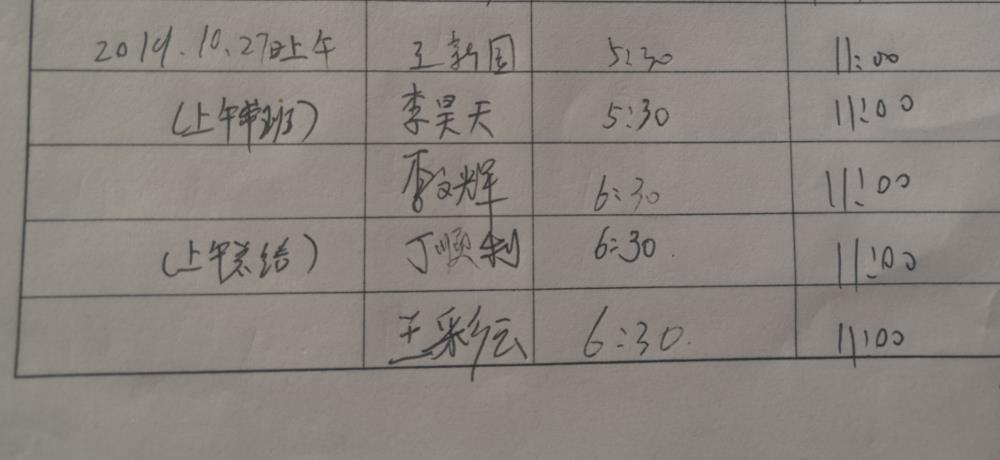 2019.10.27日上午 王新国 5:30 11:00
(上午带班) 李昊天 5:30 11:00
李文辉 6:30 11:00
(上午总结) 丁顺利 6:30 11:00
王彩云 6:30 11:00